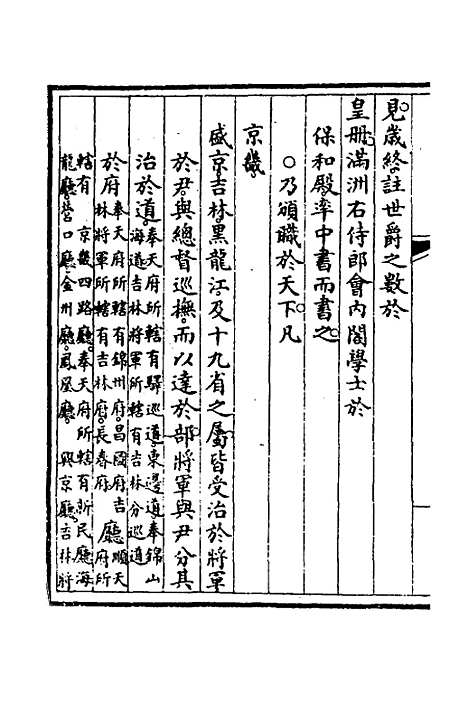 見歲終註世爵之數於
皇冊滿洲右侍郎會內閣學士於
保和殿率中書而書之
○乃頒職於天下凡
京畿
盛京吉林黑龍江及十九省之屬皆受治於將軍
於尹與總督巡撫而以達於部將軍與尹分其
治於道奉天府所轄有驛巡道東邊道奉錦山
海道吉林將軍所轄有吉林分巡道
於府奉天府所轄有錦州府昌圖府吉
林將軍所轄有吉林府長春府
廳順天
府所
轄有京畿四路廳奉天府所轄有新民廳海
龍廳營口廳金州廳鳳凰廳興京廳吉林將